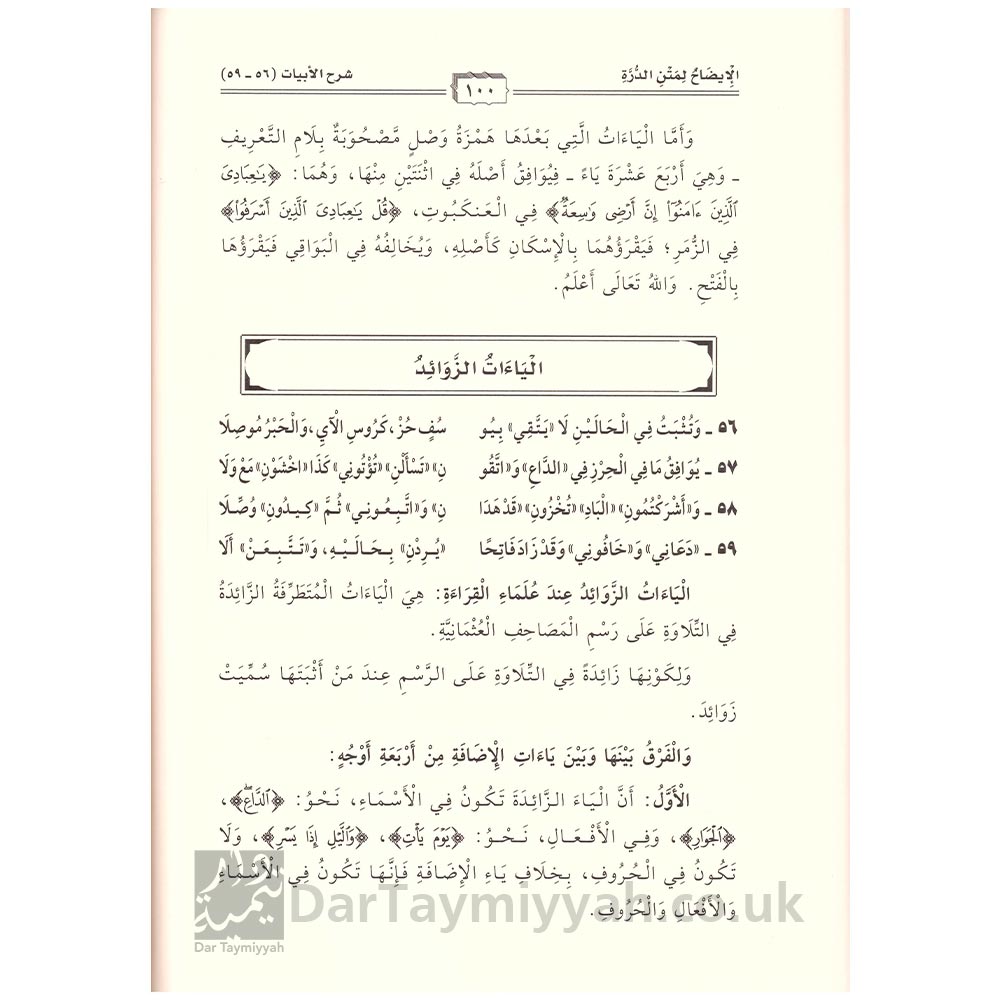 الْإِيضَاحُ لِمَتْنِ الدُّرَّةِ
١٠٠
شرح الأبيات (٥٦ - ٥٩)
وَأَمَّا الْيَاءَاتُ الَّتِي بَعْدَهَا هَمْزَةُ وَصْلٍ مَصْحُوبَةٌ بِلَامِ التَّعْرِيفِ
ـ وَهِيَ أَرْبَعَ عَشْرَةَ يَاءً ـ فَيُوَافِقُ أَصْلَهُ فِي اثْنَتَيْنِ مِنْهَا، وَهُمَا: ﴿يَٰعِبَادِىَ
ٱلَّذِينَ ءَامَنُوٓا۟ إِنَّ أَرْضِى وَٰسِعَةٌ﴾ فِي الْعَنكَبُوتِ، ﴿قُلْ يَٰعِبَادِىَ ٱلَّذِينَ أَسْرَفُوا۟﴾
فِي الزُّمَرِ؛ فَيَقْرَؤُهُمَا بِالْإِسْكَانِ كَأَصْلِهِ، وَيُخَالِفُهُ فِي الْبَوَاقِي فَيَقْرَؤُهَا
بِالْفَتْحِ. وَاللهُ تَعَالَى أَعْلَمُ.
الْيَاءَاتُ الزَّوَائِدُ
٥٦ ـ وَتُثْبَتُ فِي الْحَالَيْنِ لَا «يَتَّقِي» بِيُو سُفٍ حُزْ، كَرُوسِ الْآيِ، وَالْحَبْرُ مُوصِلَا
٥٧ ـ يُوَافِقُ مَا فِي الْحِرْزِ فِي «الدَّاعِ» وَ«اتَّقُو نِ» «تَسْأَلْنِ» «تُؤْتُونِي» كَذَا «اخْشَوْنِ» مَعْ وَلَا
٥٨ ـ وَ«أَشْرَكْتُمُونِ» «الْبَادِ» «تُخْزُونِ» «قَدْ هَدَا نِ» وَ«اتَّبِعُونِي» ثُمَّ «كِيدُونِ» وُصِّلَا
٥٩ ـ «دَعَانِي» وَ«خَافُونِي» وَقَدْ زَادَ فَاتِحًا «يُرِدْنِ» بِحَالَيْهِ، وَ«تَتَّبِعَنْ» أَلَا
الْيَاءَاتُ الزَّوَائِدُ عِندَ عُلَمَاءِ الْقِرَاءَةِ: هِيَ الْيَاءَاتُ الْمُتَطَرِّفَةُ الزَّائِدَةُ
فِي التِّلَاوَةِ عَلَى رَسْمِ الْمَصَاحِفِ الْعُثْمَانِيَّةِ.
وَلِكَوْنِهَا زَائِدَةً فِي التِّلَاوَةِ عَلَى الرَّسْمِ عِندَ مَنْ أَثْبَتَهَا سُمِّيَتْ
زَوَائِدَ.
وَالْفَرْقُ بَيْنَهَا وَبَيْنَ يَاءَاتِ الْإِضَافَةِ مِنْ أَرْبَعَةِ أَوْجُهٍ:
الْأَوَّلُ: أَنَّ الْيَاءَ الزَّائِدَةَ تَكُونُ فِي الْأَسْمَاءِ، نَحْوُ: ﴿ٱلدَّاعِ﴾،
﴿ٱلْجَوَارِ﴾، وَفِي الْأَفْعَالِ، نَحْوُ: ﴿يَوْمَ يَأْتِ﴾، ﴿وَٱلَّيْلِ إِذَا يَسْرِ﴾، وَلَا
تَكُونُ فِي الْحُرُوفِ، بِخِلَافِ يَاءِ الْإِضَافَةِ فَإِنَّهَا تَكُونُ فِي الْأَسْمَاءِ
وَالْأَفْعَالِ وَالْحُرُوفِ.
DarTaymiyyah.co.uk
Dar Taymiyyah